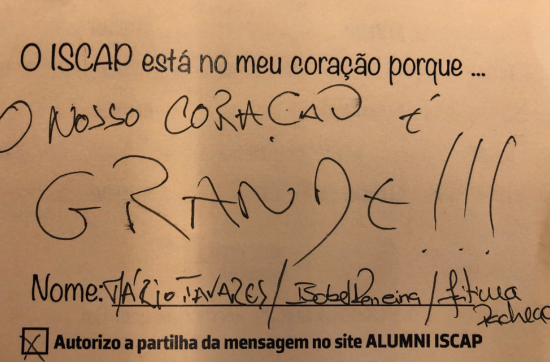 O ISCAP está no meu coração porque ...
O NOSSO CORAÇAO É
GRANDE!!!
Nome: MÁRIO TAVARES / Isabel Ferreira / Fátima
Pacheco
☒ Autorizo a partilha da mensagem no site ALUMNI ISCAP